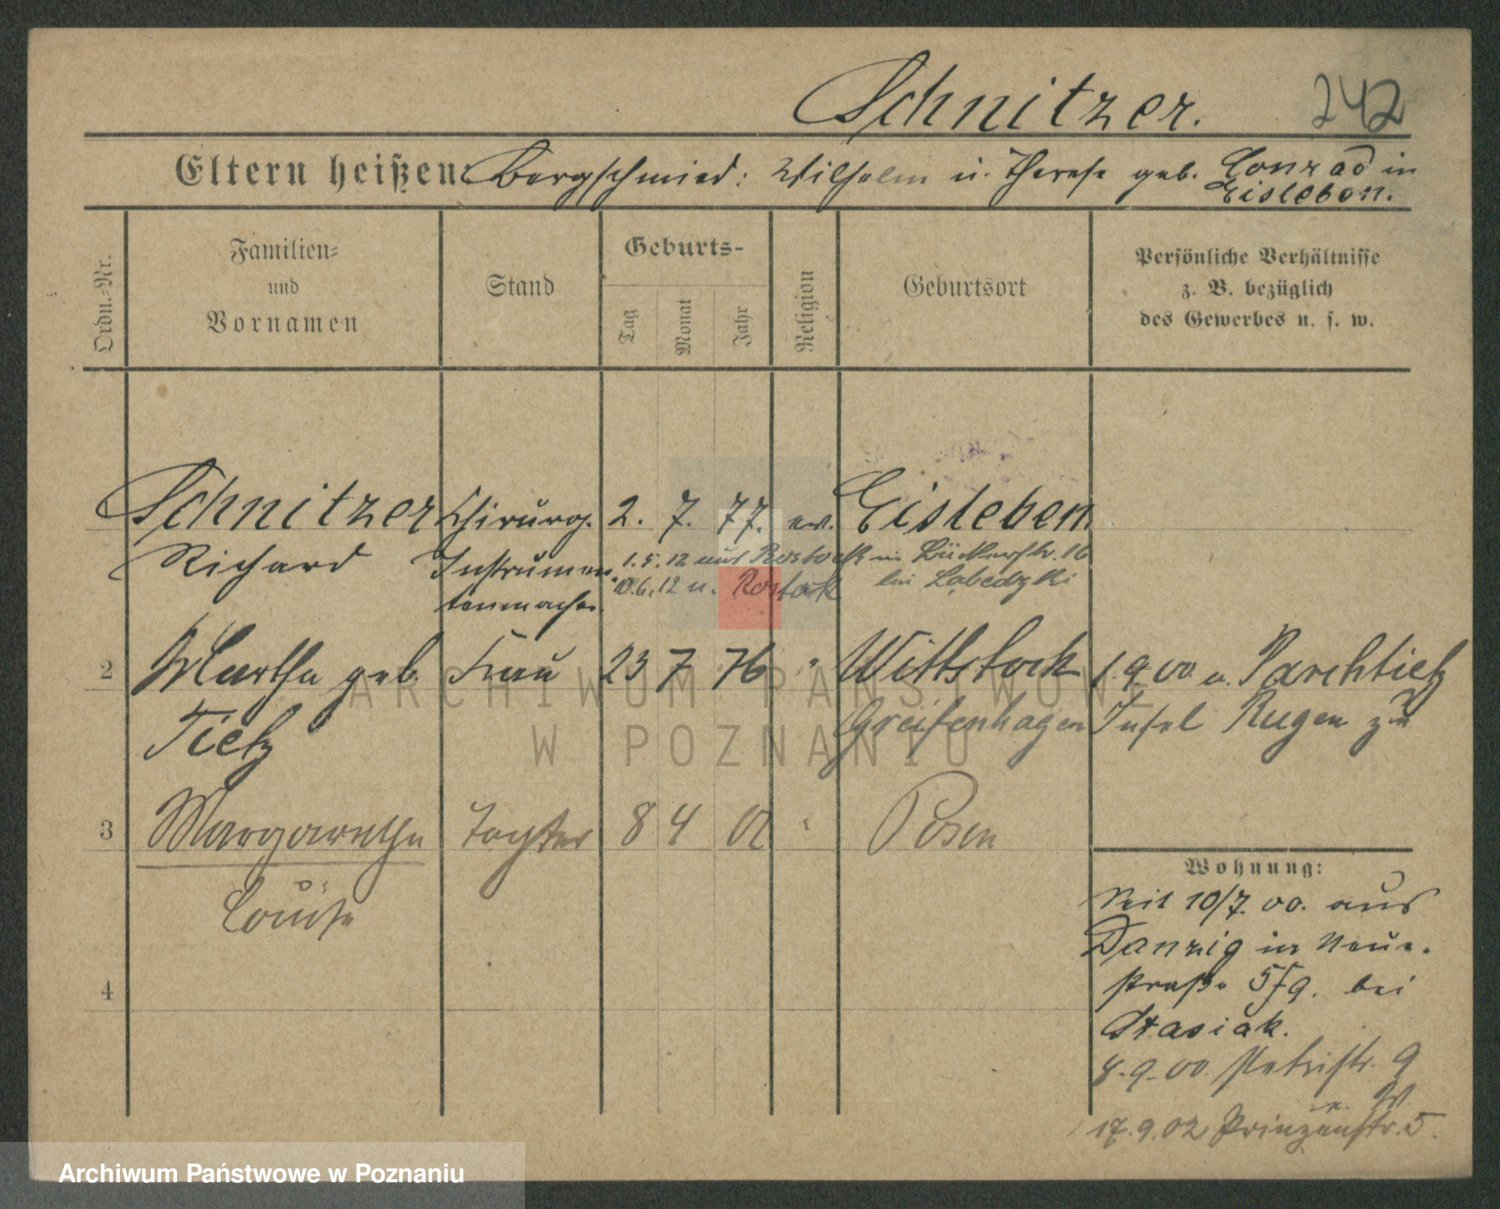 Schnitzer. 242
Eltern heißen: Bergschmied: Wilhelm u. Therese geb. Conrad in
Eisleben.
Ordn.-Nr.
Familien-
und
Vornamen
Stand
Geburts-
Tag
Monat
Jahr
Religion
Geburtsort
Persönliche Verhältnisse
z. B. bezüglich
des Gewerbes u. s. w.
Schnitzer Chirurg. 2. 7. 77. ev. Eisleben.
Richard Instrumen
tenmacher.
1.5.12 aus Rostock in Bückerstr. 16
10.6.12 n. Rostock bei Labedzki
2 Martha geb. Frau 23 7 76 " Wittstock 1.9.00 v.
Tietz Greifenhagen Insel Rügen zu
3 Margarethe Tochter 8 4 01 " Posen
Louise
4
Wohnung:
Seit 10/7.00. aus
Danzig in Neue-
straße 5/9. bei
Stasiak.
8.9.00. Petristr. 9
17.9.02 Prinzenstr. 5.
ARCHIWUM PAŃSTWOWE
W POZNANIU
Archiwum Państwowe w Poznaniu